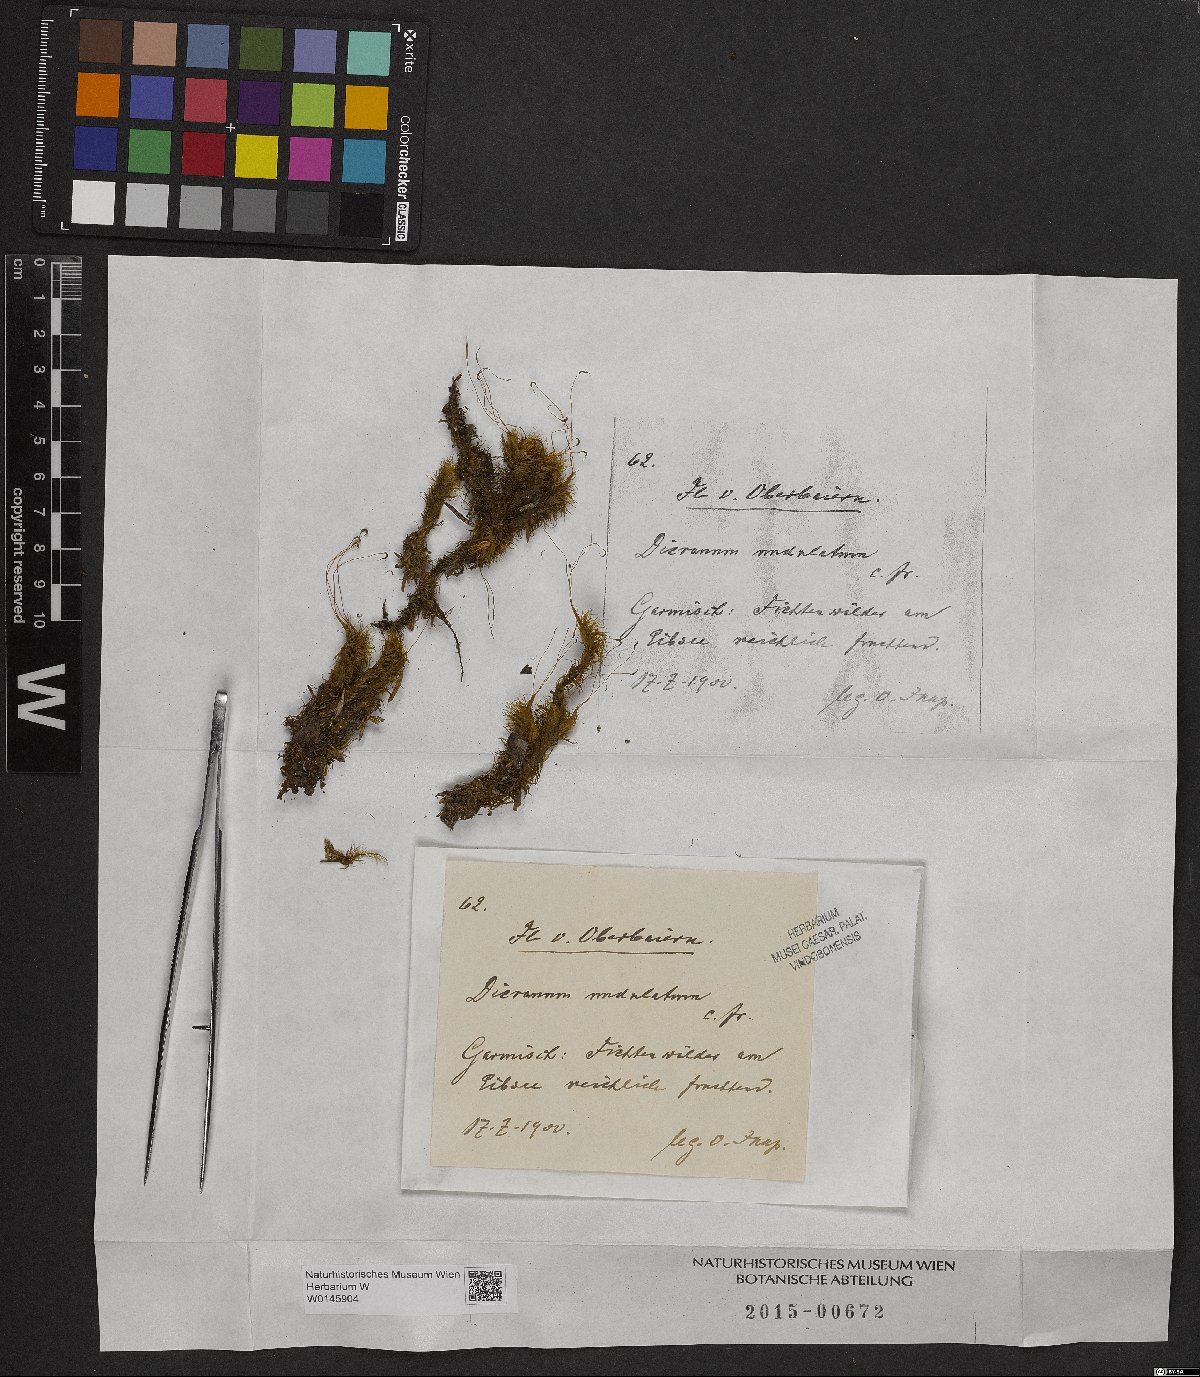 x-rite
colorchecker CLASSIC
mm
cm
0
1
2
3
4
5
6
7
8
9
10
copyright reserved
W
62.
Fl. v. Oberbaiern.
Dicranum undulatum
c. fr.
Garmisch: Fichtenwälder am
Eibsee reichlich fruchtend.
17.7.1900.
leg. O.
62.
Fl. v. Oberbaiern.
Dicranum undulatum
c. fr.
Garmisch: Fichtenwälder am
Eibsee reichlich fruchtend.
17.7.1900.
leg. O.
HERBARIUM
MUSEI CAESAR. PALAT.
VINDOBONENSIS
Naturhistorisches Museum Wien
Herbarium W
W0145904
NATURHISTORISCHES MUSEUM WIEN
BOTANISCHE ABTEILUNG
2015-00672
BY-SA